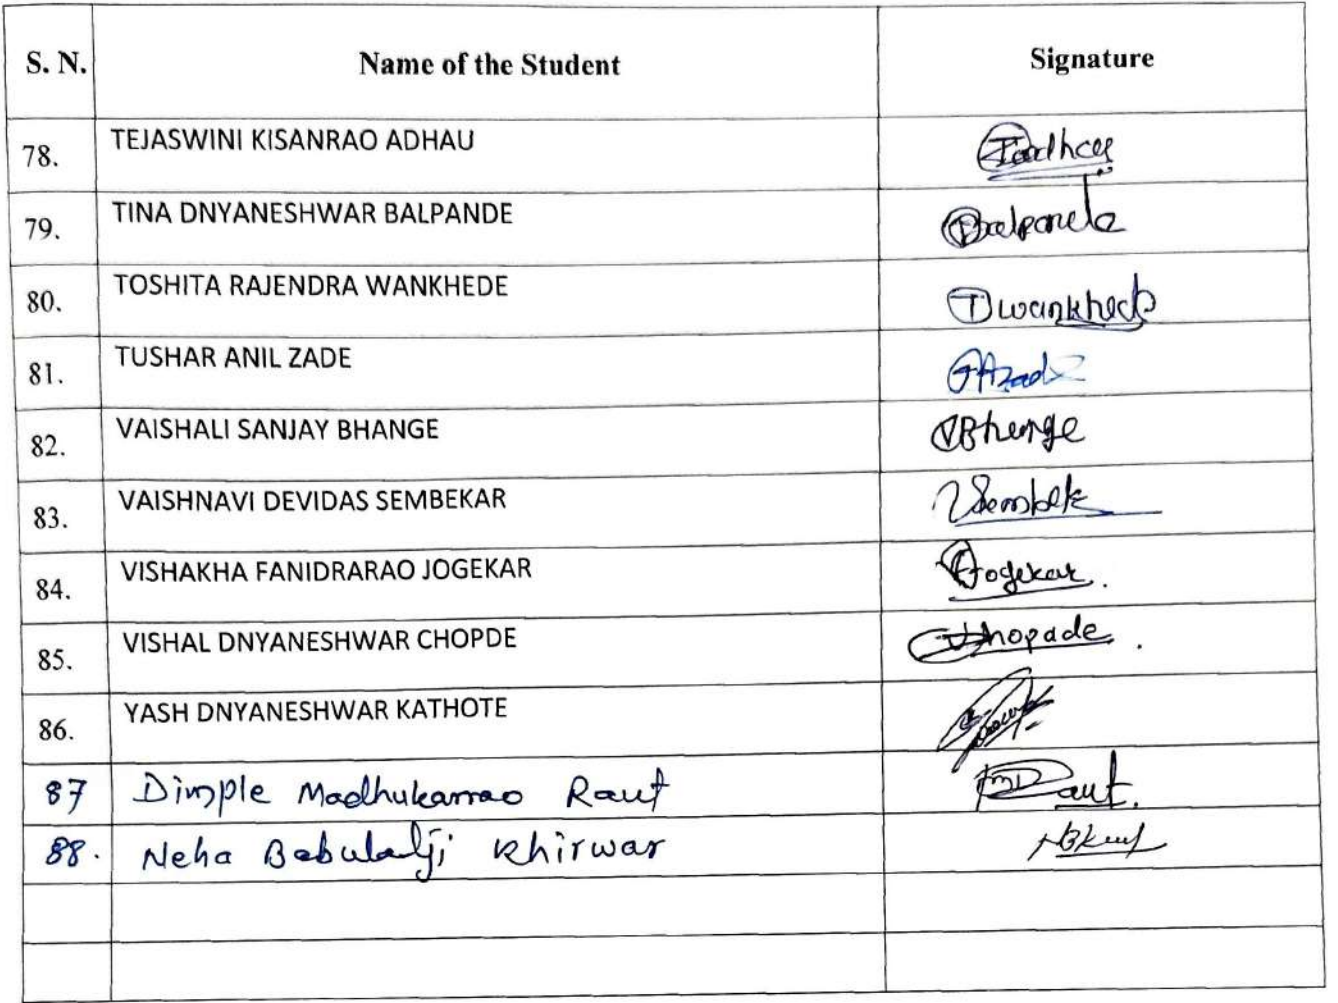 S. N. Name of the Student Signature
78. TEJASWINI KISANRAO ADHAU
79. TINA DNYANESHWAR BALPANDE Balpande
80. TOSHITA RAJENDRA WANKHEDE Twankhede
81. TUSHAR ANIL ZADE TAzade
82. VAISHALI SANJAY BHANGE VBhange
83. VAISHNAVI DEVIDAS SEMBEKAR
84. VISHAKHA FANIDRARAO JOGEKAR Jogekar.
85. VISHAL DNYANESHWAR CHOPDE
86. YASH DNYANESHWAR KATHOTE
87 Dimple Madhukarrao Raut Raut.
88. Neha Babulalji Khirwar